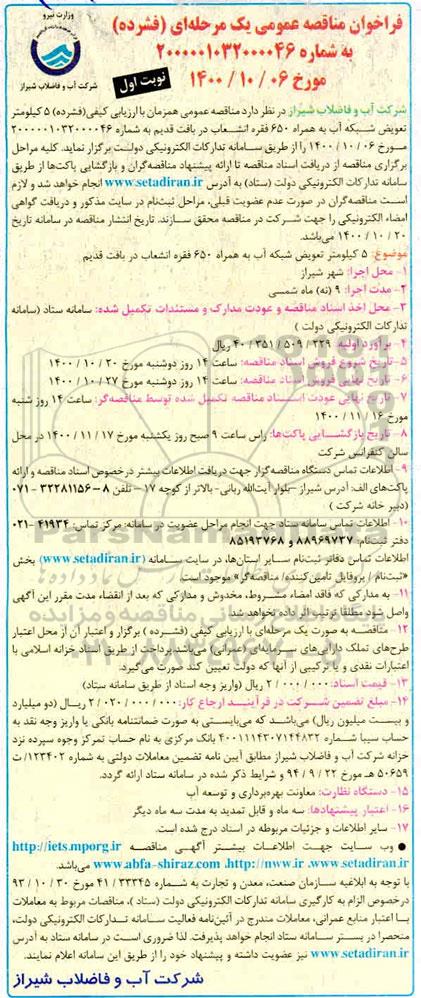 فراخوان مناقصه عمومی یک مرحله‌ای (فشرده)
به شماره ۲۰۰۰۰۰۱۰۳۲۰۰۰۰۴۶
مورخ ۰۶ / ۱۰ / ۱۴۰۰
نوبت اول
وزارت نیرو
شرکت آب و فاضلاب شیراز
شرکت آب و فاضلاب شیراز در نظر دارد مناقصه عمومی همزمان با ارزیابی کیفی(فشرده) ۵ کیلومتر
تعویض شبکه آب به همراه ۶۵۰ فقره انشعاب در بافت قدیم به شماره ۲۰۰۰۰۰۱۰۳۲۰۰۰۰۴۶
مورخ ۰۶ / ۱۰ / ۱۴۰۰ را از طریق سامانه تدارکات الکترونیکی دولت برگزار نماید. کلیه مراحل
برگزاری مناقصه از دریافت اسناد مناقصه تا ارائه پیشنهاد مناقصه‌گران و بازگشایی پاکت‌ها از طریق
سامانه تدارکات الکترونیکی دولت (ستاد) به آدرس www.setadiran.ir انجام خواهد شد و لازم
است مناقصه‌گران در صورت عدم عضویت قبلی، مراحل ثبت‌نام در سایت مذکور و دریافت گواهی
امضاء الکترونیکی را جهت شرکت در مناقصه محقق سازند. تاریخ انتشار مناقصه در سامانه تاریخ
۲۰ / ۱۰ / ۱۴۰۰ می‌باشد.
موضوع: ۵ کیلومتر تعویض شبکه آب به همراه ۶۵۰ فقره انشعاب در بافت قدیم
۱- محل اجرا: شهر شیراز
۲- مدت اجرا: ۹ (نه) ماه شمسی
۳- محل اخذ اسناد مناقصه و عودت مدارک و مستندات تکمیل شده: سامانه ستاد (سامانه
تدارکات الکترونیکی دولت )
۴- برآورد اولیه: ۲۲۹ / ۵۰۹ / ۳۵۱ / ۴۰ ریال
۵- تاریخ شروع فروش اسناد مناقصه: ساعت ۱۴ روز دوشنبه مورخ ۲۰ / ۱۰ / ۱۴۰۰
۶- تاریخ نهایی فروش اسناد مناقصه: ساعت ۱۴ روز دوشنبه مورخ ۲۷ / ۱۰ / ۱۴۰۰
۷- تاریخ نهایی عودت اسناد مناقصه تکمیل شده توسط مناقصه‌گر: ساعت ۱۴ روز شنبه
مورخ ۱۶ / ۱۱ / ۱۴۰۰
۸- تاریخ بازگشایی پاکت‌ها: راس ساعت ۹ صبح روز یکشنبه مورخ ۱۷ / ۱۱ / ۱۴۰۰ در محل
سالن کنفرانس شرکت
۹- اطلاعات تماس دستگاه مناقصه‌گزار جهت دریافت اطلاعات بیشتر درخصوص اسناد مناقصه و ارائه
پاکت‌های الف: آدرس شیراز –بلوار آیت‌الله ربانی- بالاتر از کوچه ۱۷ – تلفن ۸ – ۳۲۲۸۱۱۵۶ - ۰۷۱
(دبیر خانه شرکت )
۱۰- اطلاعات تماس سامانه ستاد جهت انجام مراحل عضویت در سامانه: مرکز تماس: ۴۱۹۳۴ -۰۲۱
دفتر ثبت‌نام: ۸۸۹۶۹۷۳۷ و ۸۵۱۹۳۷۶۸
اطلاعات تماس دفاتر ثبت‌نام سایر استان‌ها، در سایت سامانه (www.setadiran.ir) بخش
«ثبت‌نام / پروفایل تامین‌کننده/ مناقصه‌گر» موجود است.
۱۱- به مدارکی که فاقد امضاء، مشروط، مخدوش و مدارکی که بعد از انقضاء مدت مقرر این آگهی
واصل شود مطلقا ترتیب اثر داده نخواهد شد.
۱۲- مناقصه به صورت یک مرحله‌ای با ارزیابی کیفی (فشرده ) برگزار و اعتبار آن از محل اعتبار
طرح‌های تملک دارایی‌های سرمایه‌ای (عمرانی) می‌باشد.پرداخت از طریق اسناد خزانه اسلامی یا
اعتبارات نقدی و یا ترکیبی از آنها که دولت تعیین کند صورت می‌گیرد.
۱۳- قیمت اسناد: ۰۰۰ / ۰۰۰ / ۲ ریال (واریز وجه اسناد از طریق سامانه ستاد)
۱۴- مبلغ تضمین شرکت در فرآیند ارجاع کار: ۰۰۰ / ۰۰۰ / ۰۲۰ / ۲ ریال (دو میلیارد
و بیست میلیون ریال) می‌باشد که می‌بایستی به صورت ضمانتنامه بانکی یا واریز وجه نقد به
حساب سیبا شماره ۴۰۰۱۱۱۴۳۰۷۱۴۴۸۳۲ بانک مرکزی به نام حساب تمرکز وجوه سپرده نزد
خزانه شرکت آب و فاضلاب شیراز مطابق آیین نامه تضمین معاملات دولتی به شماره ۱۲۳۴۰۲/ ت
۵۰۶۵۹ هـ مورخ ۲۲ / ۹ / ۹۴ و شرایط ذکر شده در سامانه ستاد ارائه گردد.
۱۵- دستگاه نظارت: معاونت بهره‌برداری و توسعه آب
۱۶- اعتبار پیشنهادها: سه ماه و قابل تمدید به مدت سه ماه دیگر
۱۷- سایر اطلاعات و جزئیات مربوطه در اسناد درج شده است.
● وب سایت جهت اطلاعات بیشتر آگهی مناقصه http://iets.mporg.ir
www.abfa-shiraz.com ،http://nww.ir ،www.setadiran.ir می‌باشد.
با توجه به ابلاغیه سازمان صنعت، معدن و تجارت به شماره ۳۳۳۴۵ / ۴۱ مورخ ۳۰ / ۱۰ / ۹۳
درخصوص الزام به کارگیری سامانه تدارکات الکترونیکی دولت (ستاد )، مناقصات مربوط به معاملات
با اعتبار منابع عمرانی، معاملات مندرج در آئین‌نامه فعالیت سامانه تدارکات الکترونیکی دولت،
منحصرا در بستر سامانه ستاد انجام خواهد پذیرفت. لذا ضروری است در سامانه ستاد به آدرس
www.setadiran.ir نیز عضویت داشته و پیشنهاد خود را از طریق این سامانه اعلام نمایند.
شرکت آب و فاضلاب شیراز